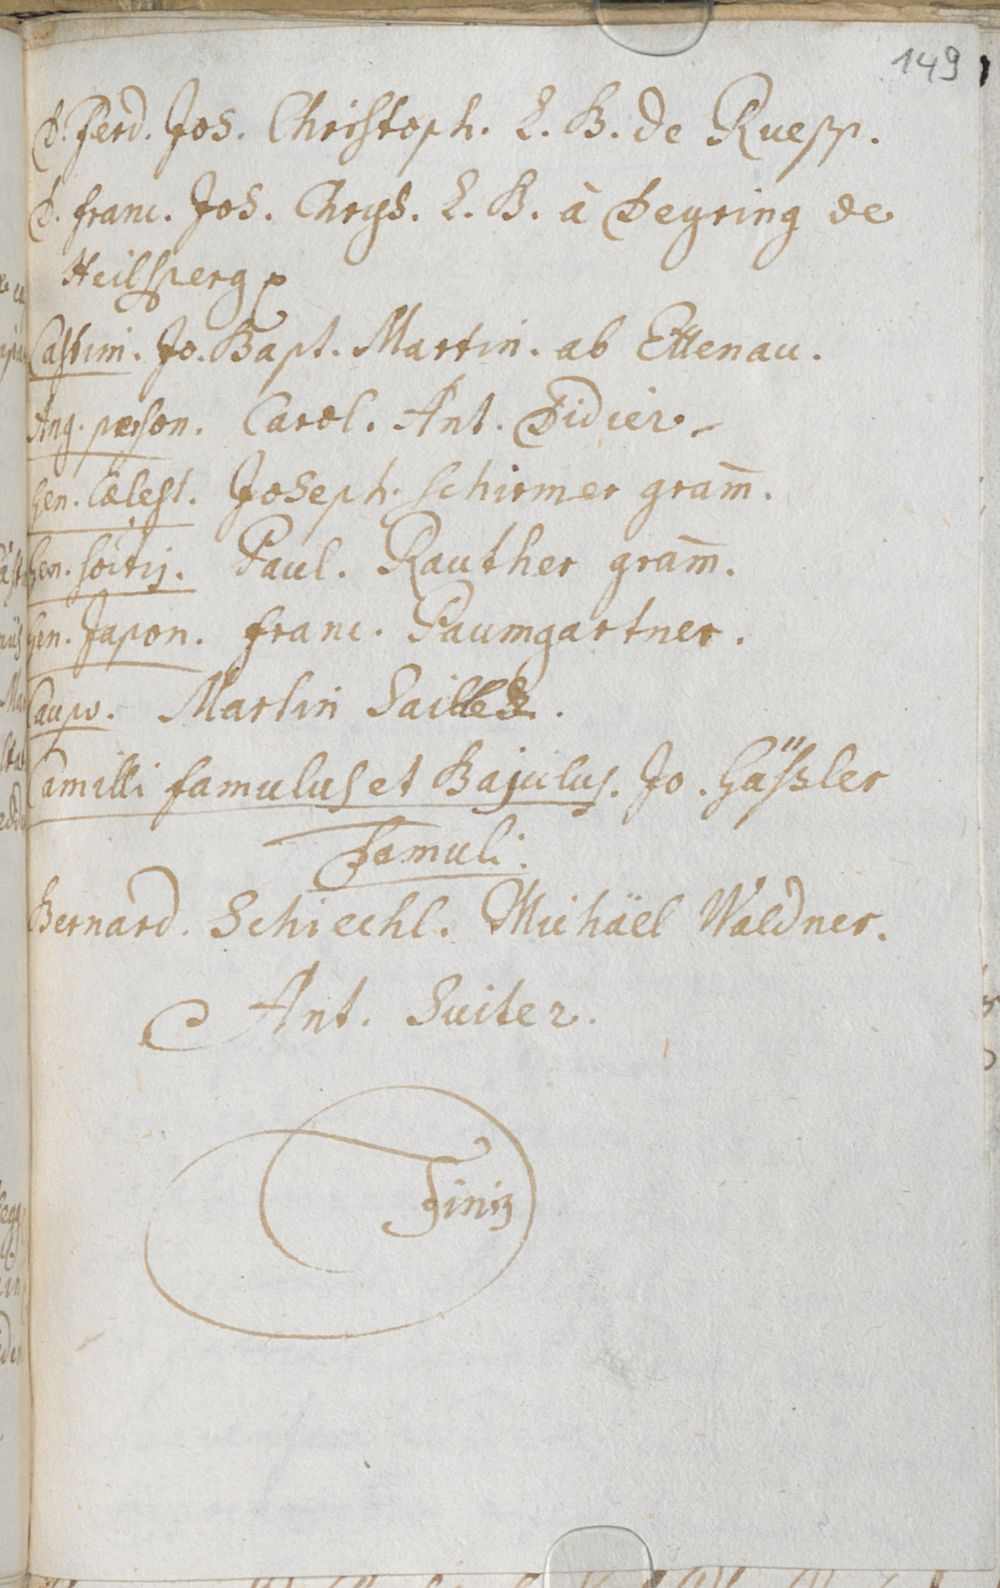 149
D. Ferd. Jos. Christoph. L. B. de Ruepp.
D. Franc. Jos. Chrys. L. B. à Deyring de
Heilsperg
Castim. Jo. Bapt. Martin. ab Ettenau.
Ang. person. Carol. Ant. Didier
Gen. Cælest. Joseph. Schirmer gram̄.
Gen. Paul. Rauther gram̄.
Gen. Japon. Franc. Paumgartner.
Caupo. Martin
Camilli famulus et Bajulus. Jo. Gässler
Famuli.
Bernard. Schiechl. Michäel Waldner.
Ant. Suiter.
Finis